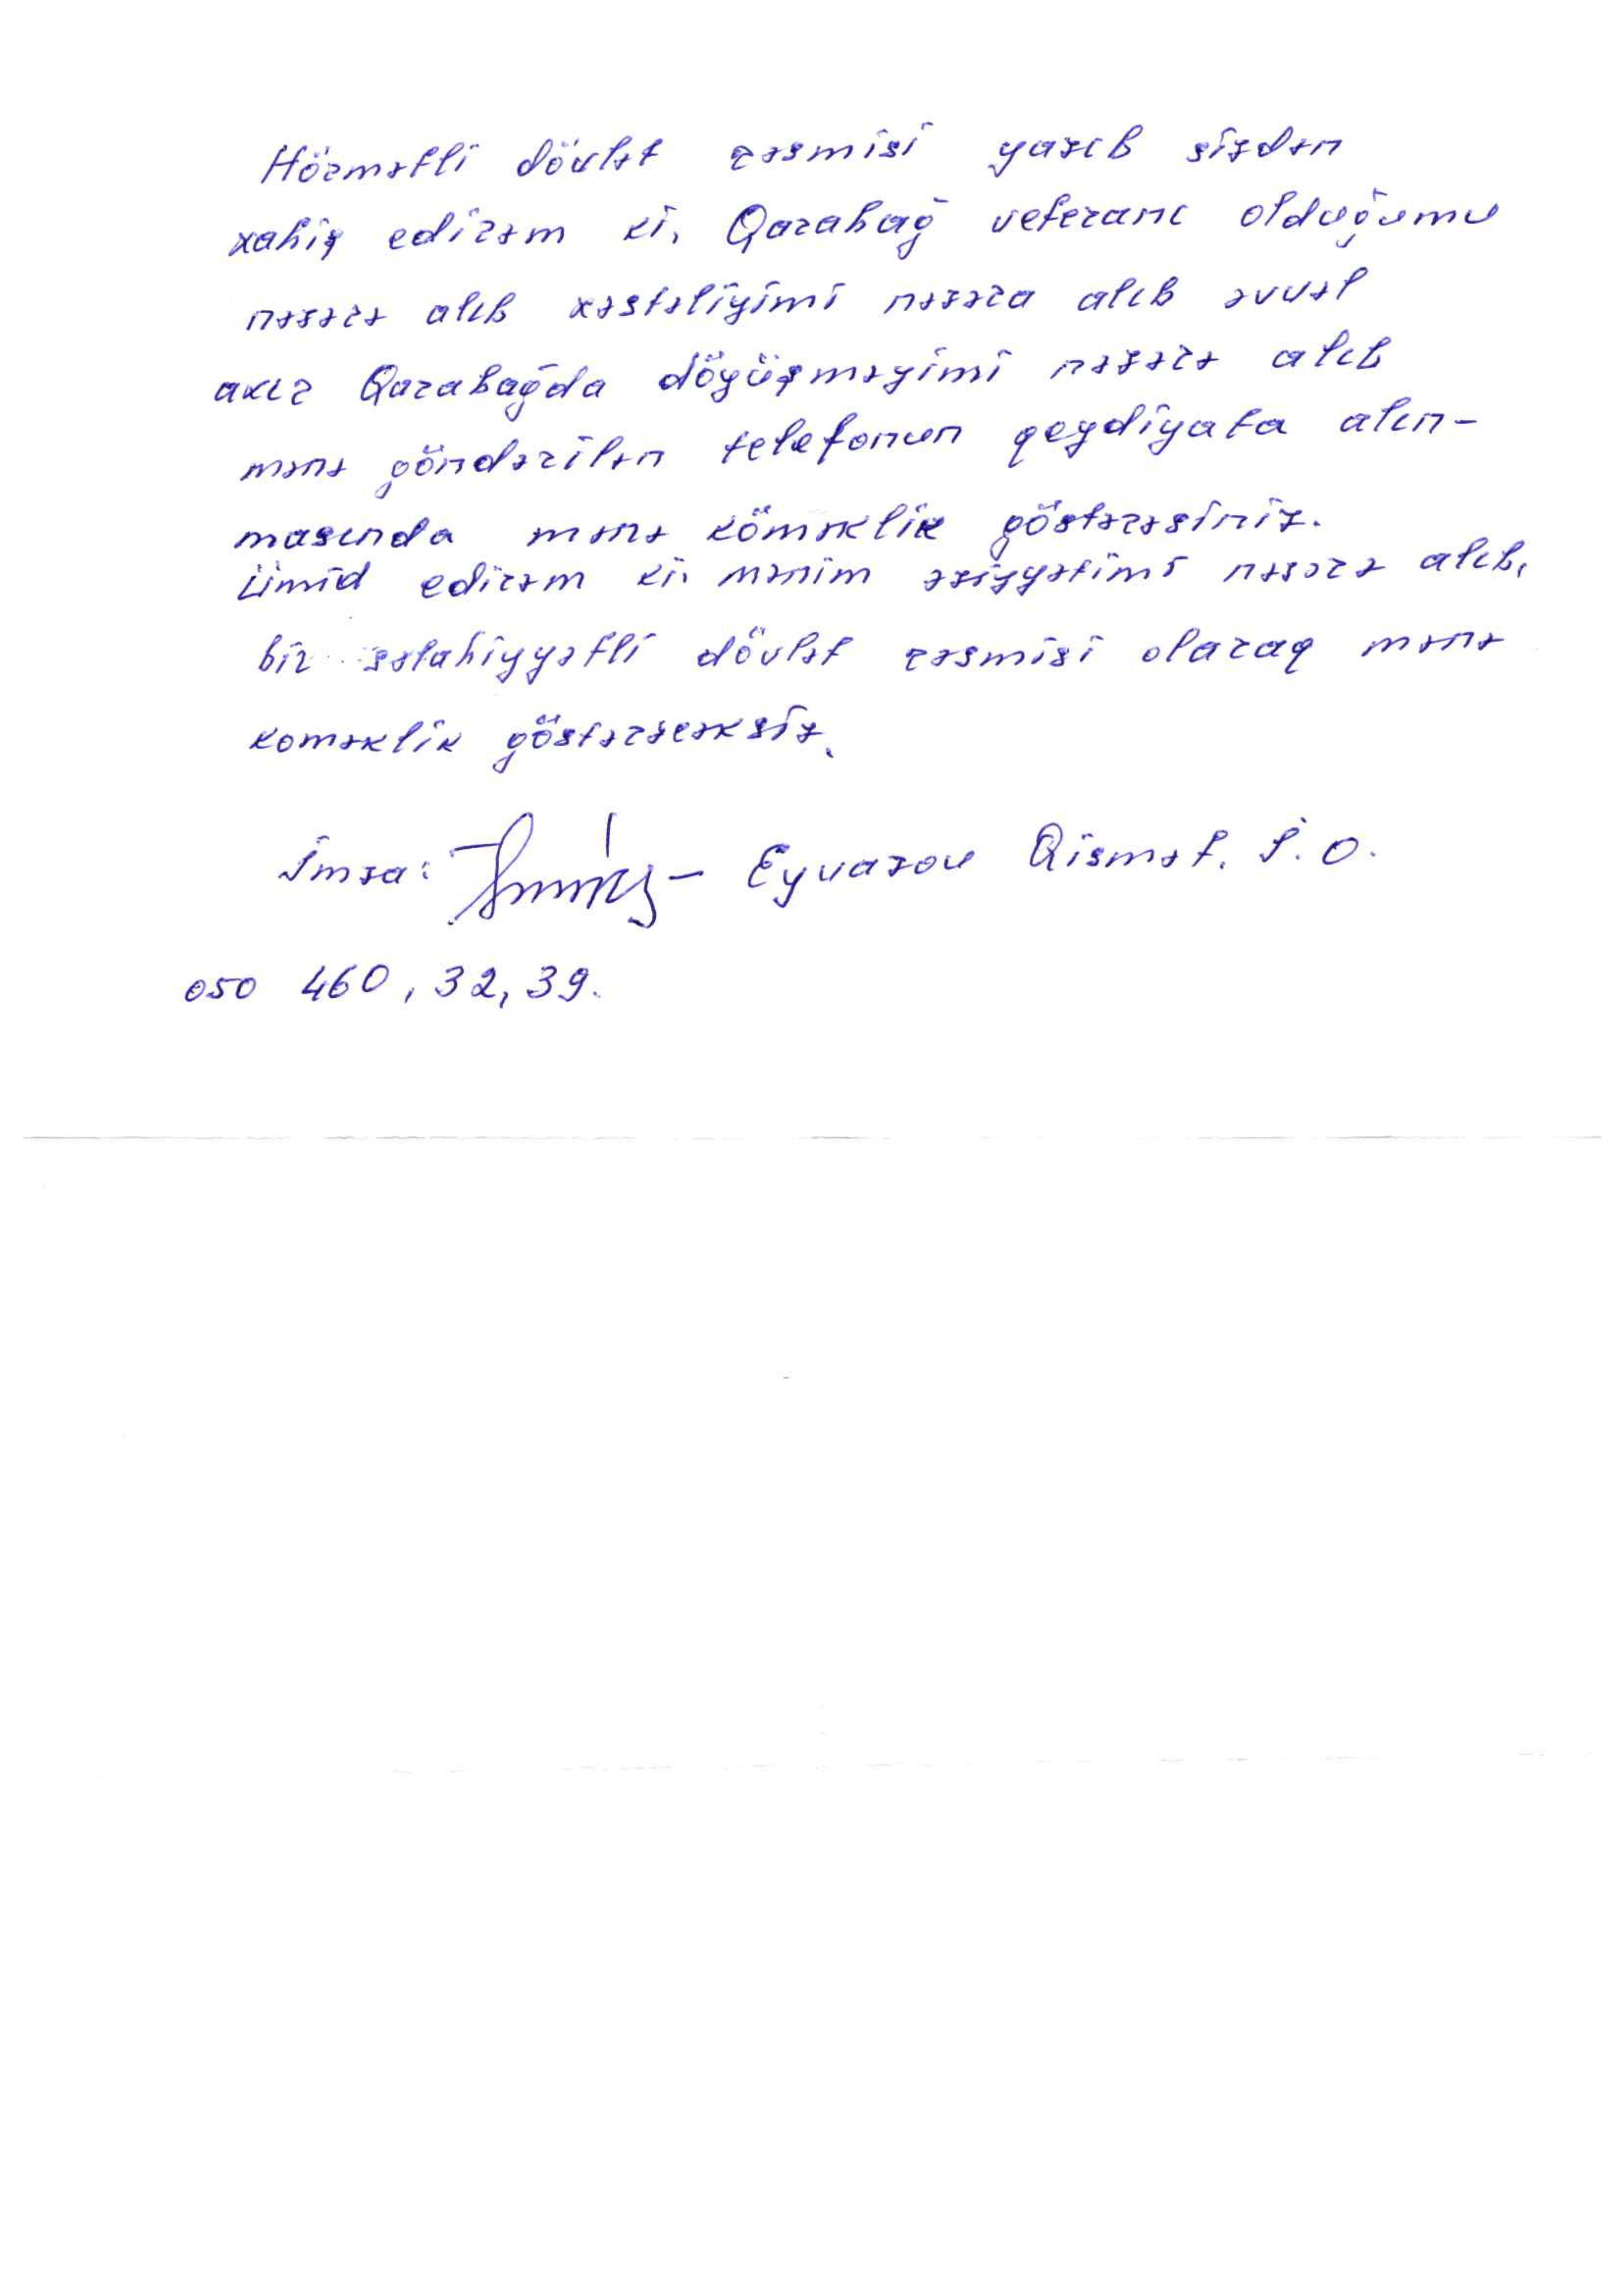 Hörmətli dövlət rəsmisi yazıb sizdən
xahiş edirəm ki, Qarabağ veteranı olduğumu
nəzərə alıb xəstəliyimi nəzəra alıb əvvəl
axır Qarabağda döyüşməyimi nəzərə alıb
mənə göndərilən telefonun qeydiyata alın-
masında mənə köməklik göstərəsiniz.
Ümid edirəm ki, mənim əziyyətimi nəzərə alıb,
bir səlahiyyətli dövlət rəsmisi olaraq mənə
koməklik göstərəcəksiz.
İmza: Eyvazov Qismət. İ. O.
050 460, 32, 39.